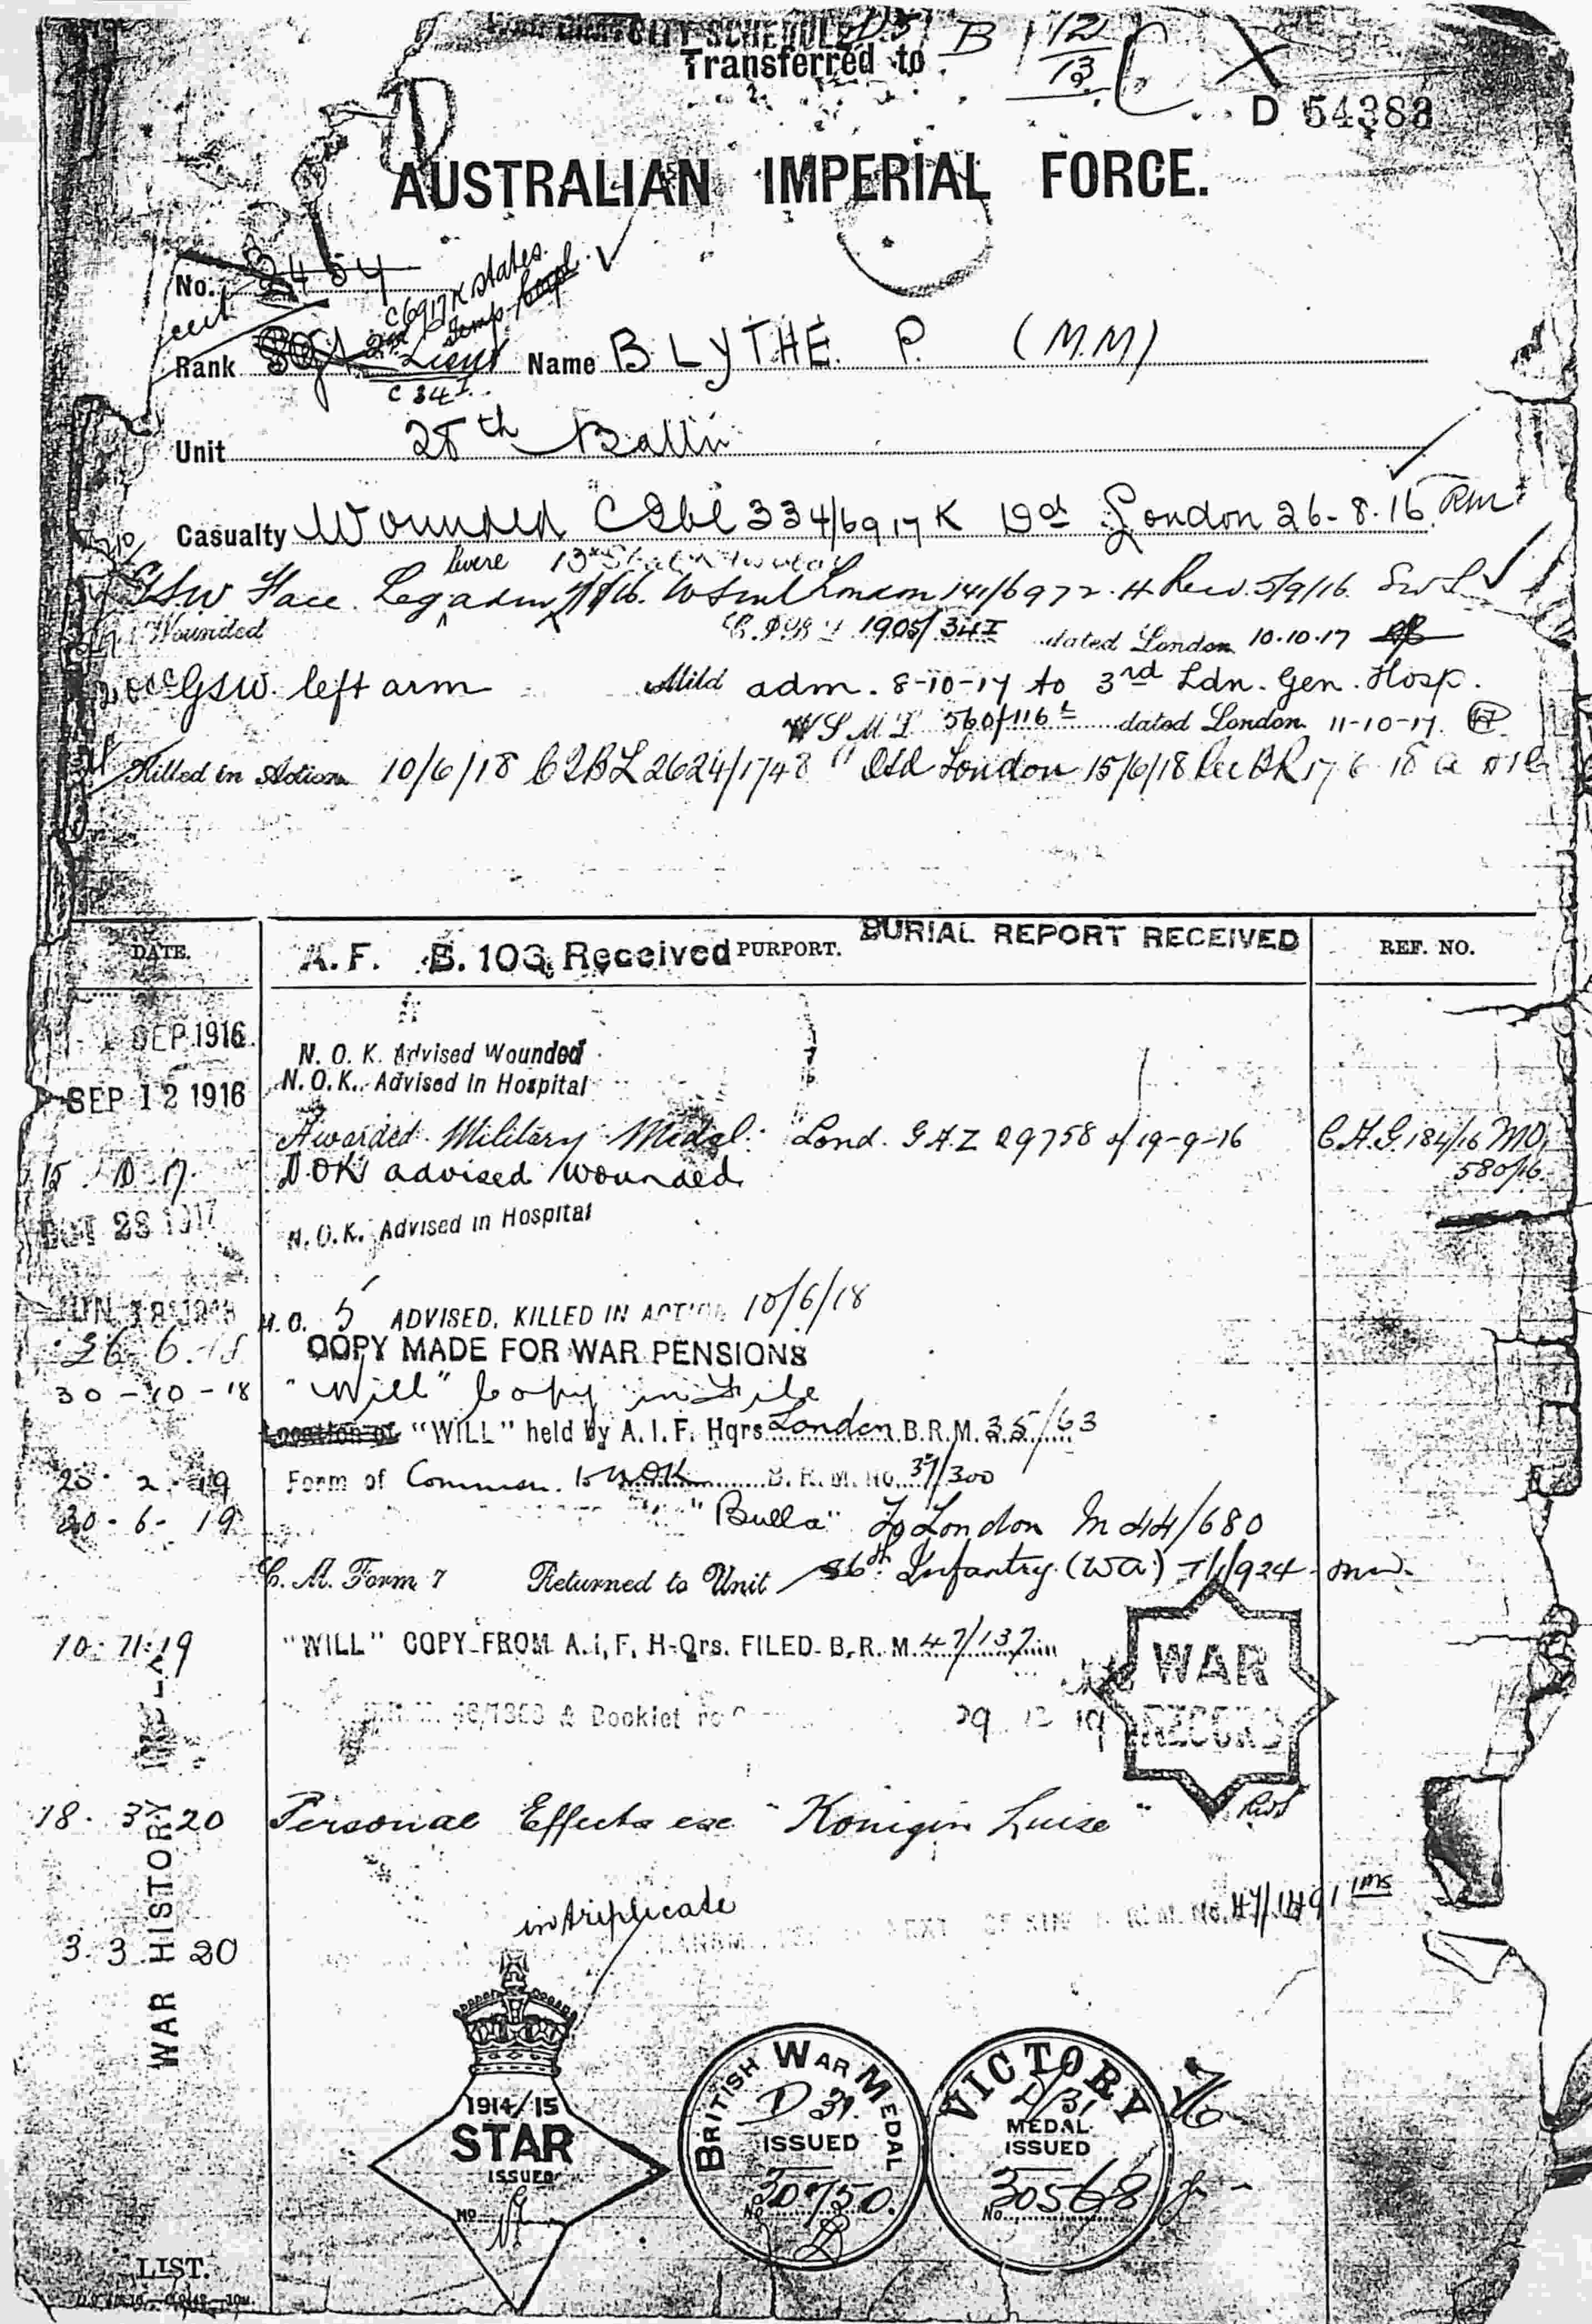 CITY SCHEDULE D.51 B 121/13
Transferred to
D 54383
AUSTRALIAN IMPERIAL FORCE.
No. 2454
C6917K states.
Temp Corpl.
Rank Sgt 2nd Lieut Name BLYTHE P. (M.M)
C 34 I
Unit 28th Battn
Casualty Wounded CABL 334/6917K dd London 26-8-16
Severe
GSW Face Leg adm London 141/6972 H Recd. 5/9/16
Wounded 1905/34I dated London 10.10.17
GSW. left arm Mild adm. 8-10-17 to 3rd Ldn. Gen. Hosp.
W S M L 560/116 dated London 11-10-17.
Killed in Action 10/6/18 CABL 2624/1748 dtd London 15/6/18 Rec BR 17 6 18
DATE. A. F. B. 103 Received PURPORT. BURIAL REPORT RECEIVED REF. NO.
SEP 1916 N. O. K. Advised Wounded
SEP 12 1916 N. O. K. Advised in Hospital
Awarded Military Medal. Lond. GAZ 29758 of 19-9-16 C.H.G. 184/16 MD,
580/16.
15 10 17 N.OK advised wounded.
OCT 23 1917 N. O. K. Advised in Hospital
JUN 18 1918 H.O. 5 ADVISED, KILLED IN ACTION 10/6/18
26-6-18 COPY MADE FOR WAR PENSIONS
30-10-18 "Will" Copy in File
Location of "WILL" held by A. I. F. Hqrs. London B. R. M. 35/63
20-2-19 Form of Commun. to NOK B. R. M. No. 37/300
20-6-19 "Bulla" To London M 44/680
C. A. Form 7 Returned to Unit 16th Infantry (WA) 7/1/924
10.11.19 "WILL" COPY FROM A. I. F. H-Qrs. FILED B. R. M. 47/137
WAR
RECORD
Booklet 29 12 19
18. 3. 20 Personal Effects exe "Konigin Luise"
in triplicate
3. 3 20 OF KIN No. 47/1491
WAR HISTORY
1914/15
STAR
ISSUED
No
BRITISH WAR MEDAL
D 31.
ISSUED
No. 30750.
VICTORY
D/31
MEDAL
ISSUED
No. 30568
LIST.